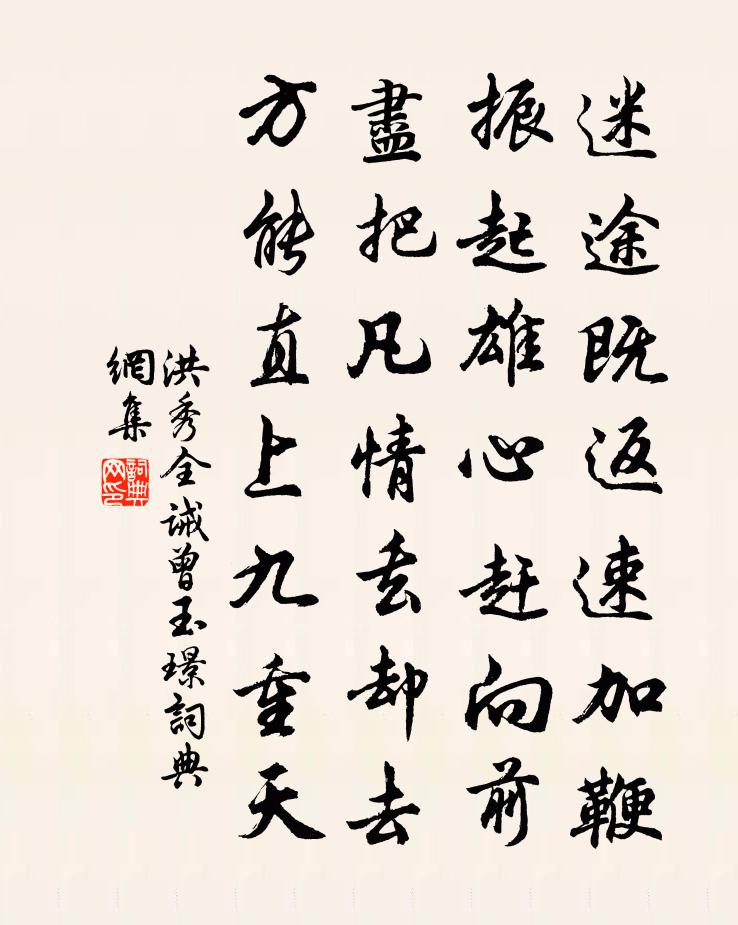 迷途既返速加鞭
振起雄心赶向前
盡把凡情丢却去
方能直上九重天
洪秀全诫曾玉璟詞典
網集
詞典
网印